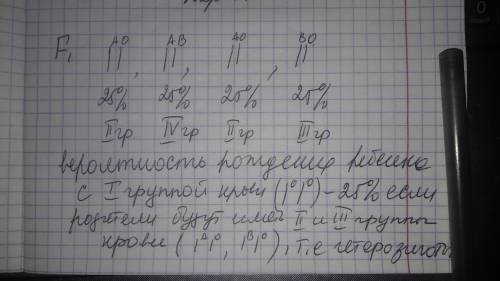 F₁ || AO, || AB, || AO, || BO
25% 25% 25% 25%
II гр IV гр II гр III гр
вероятность рождения ребенка
с I группой крови (I⁰I⁰) - 25% если
родители будут иметь II и III группы
крови (IᴬI⁰, IᴮI⁰), т.е гетерозиготы